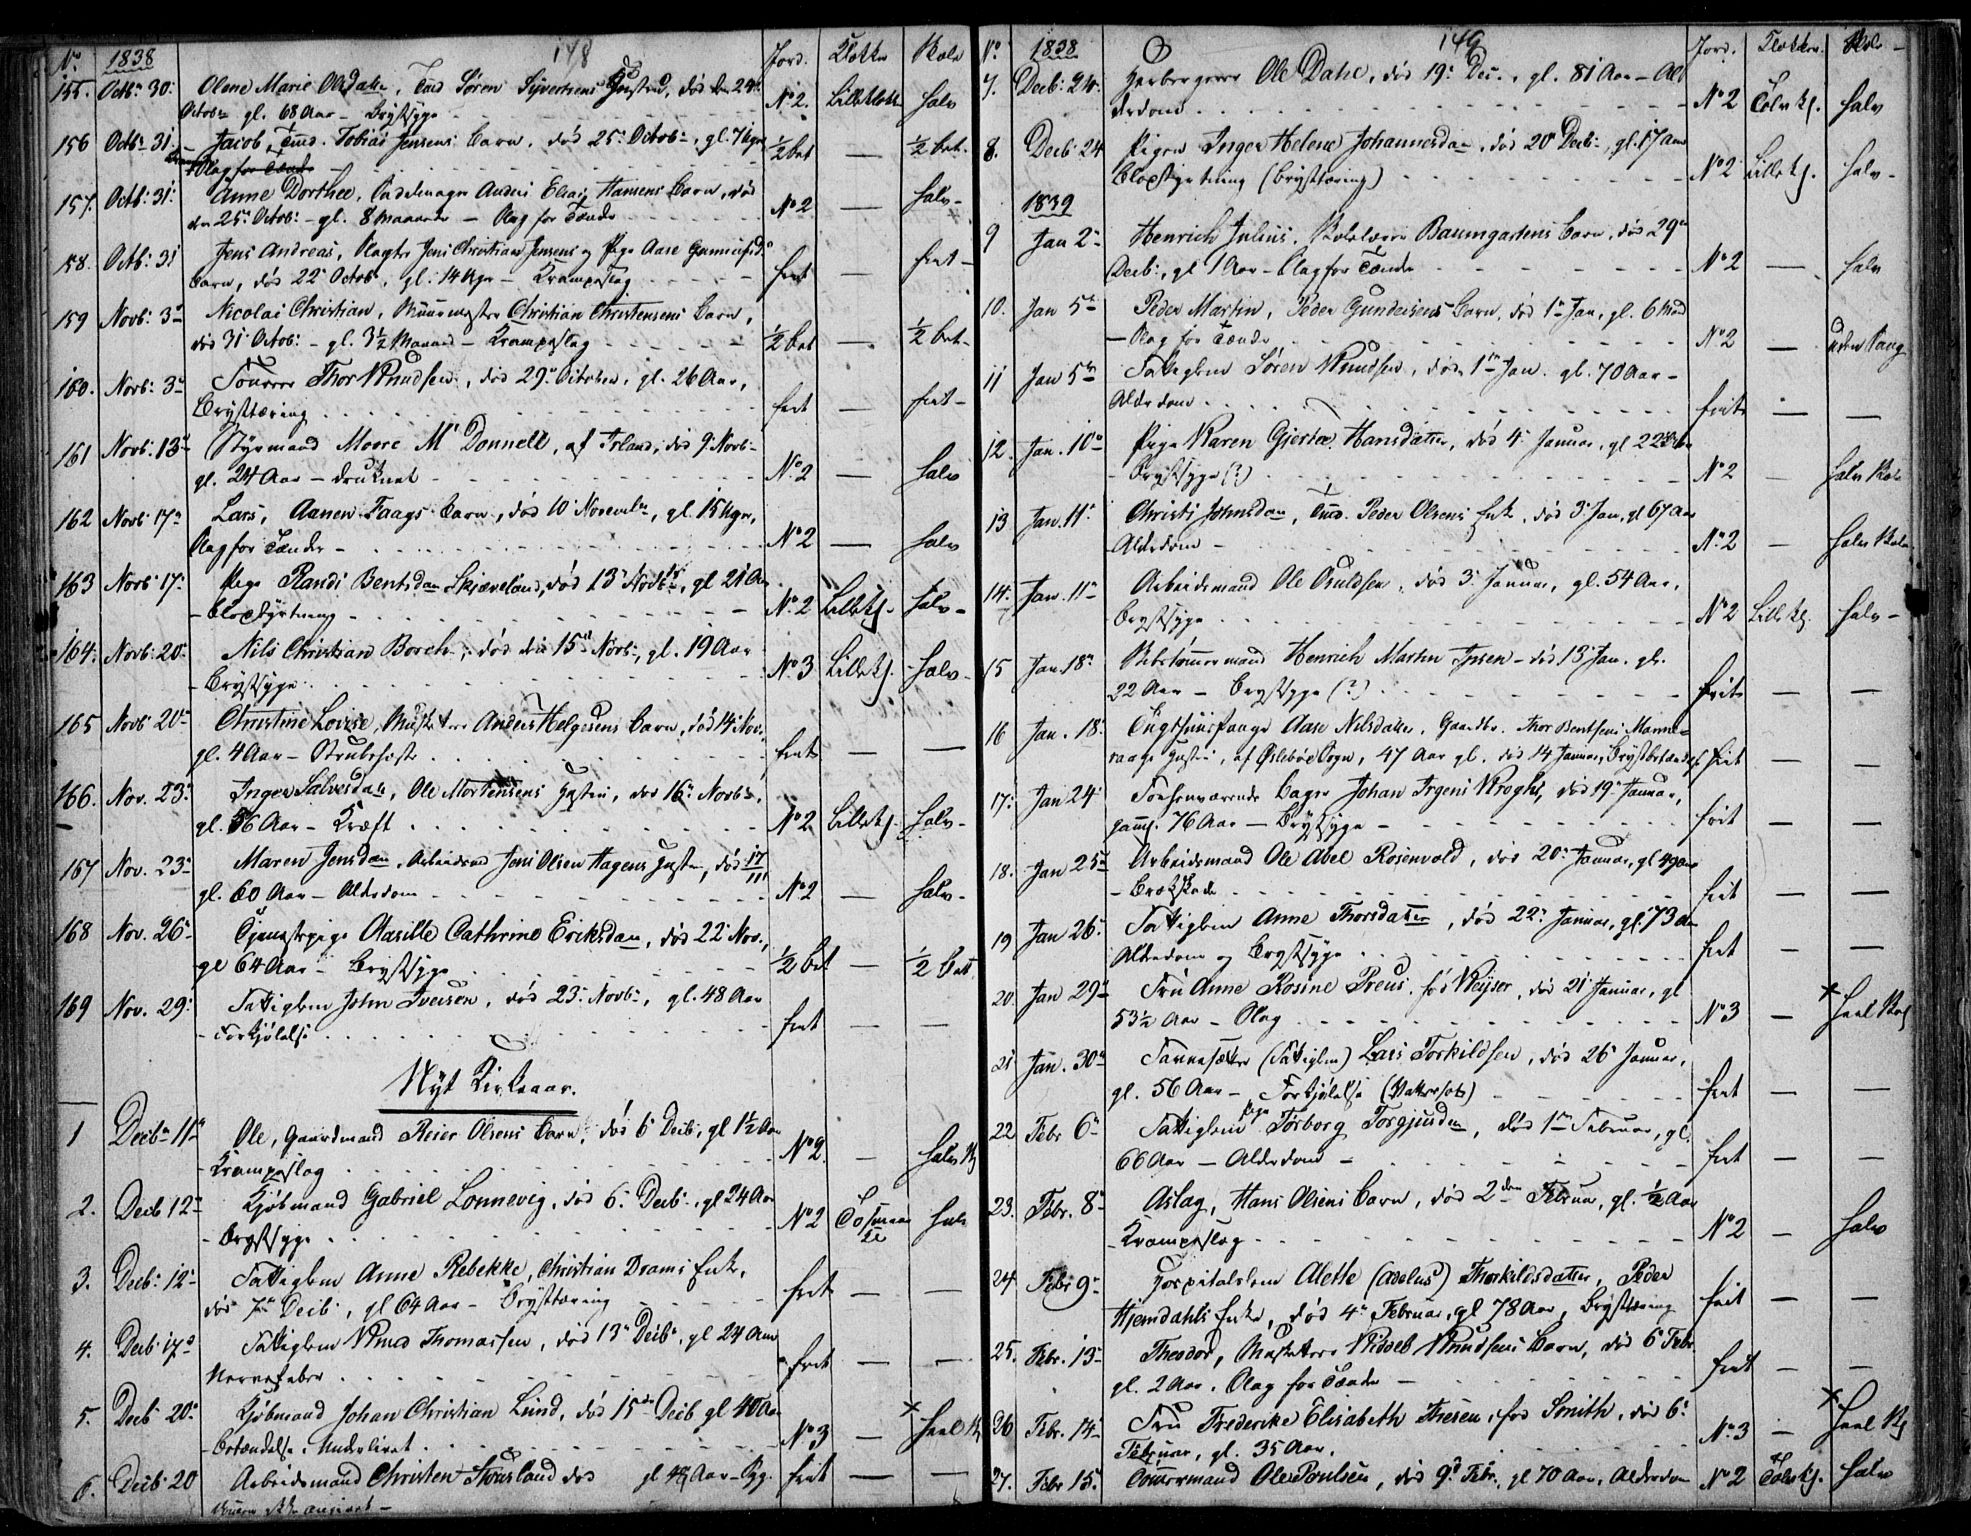 148
No 1838 Jord. Klokke Skole
155. Octbr 30. Olene Marie Olsdatter, Tmd Søren Syvertsens Hustru, død den 24de
Octobr gl. 68 Aar - Brystsyge No 2. Lille Klokke halv
156 Octbr 31. Jacob, Tmd. Tobias Jensens Barn, død 25. Octobr, gl. 7 Uger ½ bet — ½ bet.
Slag for Tænder
157. Octb: 31. Anne Dorthea, Anders Hansens Barn, død
den 25. Octob: - gl. 8 Maaneder - Slag for Tænder No 2 — halv -
158. Octb: 31 Jens Andreas, Jens Christian Jensens og Pige Aase Gunnufsd.
Barn, død 22 Octob, gl. 14 Uger - Krampeslag frit — frit -
159 Novb: 3de Nicolai Christian, Muurmester Christian Christensens Barn,
død 31 Octob: - gl. 3½ Maaned - Krampeslag ½ bet — ½ bet-
160. Novb: 3de Thor Knudsen, død 29. October, gl. 26 Aar,
Brysttæring frit — frit -
161 Novb. 13de Styrmand Moore Mc Donnell, af Irland, død 9. Novb-
gl. 24 Aar - druknet No 2 — halv
162 Novb 17de Lars, Aanen Faags Barn, død 10 Novembr, gl. 15 Uger,
Slag for Tænder - No 2 — halv
163 Novb. 17. Pige Randi Bentsdatter Skjæveland, død 13 Novbr, gl 21 Aar
- Blodstyrtning No. 2 Lille Kl. halv -
164. Novb. 20. Nils Christian Borch, død den 15de Novb:, gl. 19 Aar
- Brystsyge No 3 Lille Kl. halv -
165 Novb 20de Christine Lovise, Anders Helgesens Barn, død 14 Nov.
gl. 4 Aar - Strubehoste frit — —
166. Nov. 23. Inger Salvesdatter, Ole Mortensens Hustru, død 16de Novb-,
gl. 56 Aar - Kræft No 2 Lille Kl. halv-
167 Nov. 23. Maren Jensdatter, Arbeidsmd Jens Olsen Hagens Hustru, død 17/11
gl. 60 Aar - Alderdom No 2 — halv-
168 Nov. 26. Tjenestpige Aasille Cathrine Eriksdatter, død 22 Nov.,
gl 64 Aar - Brystsyge ½ bet — ½ bet
169 Nov. 29. Fattiglem John Iversen, død 23 Novb-, gl. 48 Aar
- Forkjølelse frit — —
Nyt Kirkeaar.
1 Decbr 11te Ole, Gaardmand Reier Olsens Barn, død 6 Decb, gl 1½ Aar
- Krampeslag No 2. — halv Kl
2. Decb 12te Kjøbmand Gabriel Lonnevig, død 6. Decb-, gl 24 Aar
- Brystsyge No 2 halv
3. Decb: 12. Fattiglem Anne Rebekke, Christian Drams Enke,
død 7de Decb:, gl 64 Aar - Brysttæring frit — —
4. Decb 17. Fattiglem Knud Thomassen, død 13 Decb:, gl 24 Aar
Nervefeber frit — —
5. Decb 20. Kjøbmand Johan Christian Lund, død 15de Decb gl 40 Aar
- Betændelse i Underlivet No 3 — × heel Kl
6. Decb 20 Arbeidsmand Christen død gl 48 Aar - frit — —
149
No 1838 Jord. Klokker. Skole
7. Decb: 24. Ole Dahl, død 19. Dec., gl. 81 Aar - Al
derdom No 2 Tolv Kl. halv
8. Decb. 24 Pigen Inger Helene Johannesdatter, død 20 Decb-, gl. 17 Aar
Blodstyrtning (Brysttæring) No 2 Lille Kl. halv -
1839
9 Jan 2. Henrich Julius, Skolelærer Baumgartens Barn, død 29de
Decb:, gl 1 Aar - Slag for Tænder No 2 — halv
10. Jan 5te Peder Martin, Peder Gundersens Barn, død 1te Jan, gl. 6 Mnd
- Slag for Tænder No 2 — uden Sang
11 Jan 5te Fattiglem Søren Knudsen, død 1te Jan. gl. 70 Aar -
Alderdom frit — —
12. Jan. 10de Pige Karen Gjertæ Hansdatter, død 4. Januar, gl 22 Aar
- Brystsyge (?) No 2 — halv Skole
13 Jan. 11te Christi Johnsdatter, Tmd. Peder Olsens Enke, død 3. Jan, gl 67 Aar
- Alderdom - No 2 — halv Skole
14. Jan. 11te Arbeidsmand Ole Osuldsen, død 3. Januar, gl. 54 Aar,
Brystsyge No 2 Lille Kl. halv -
15 Jan. 18. Skibstømmermand Henrich Martin Ipsen - død 13 Jan. gl.
22 Aar - Brystsyge (?) frit — —
16 Jan. 18. Tugthuusfange Aase Nilsdatter, Gaardbr. Thor Bentsens
Hustru, af Øslebøe Sogn, 47 Aar gl. død 14 Januar, Brystbetændelse frit — —
17. Jan 24. Forhenværende Bager Johan Irgens Krogh, død 19. Januar,
gaml. 76 Aar - Brystsyge - frit — —
18. Jan 25de Arbeidsmand Ole Abel Rosenvold, død 20. Januar, gl 49 Aar
- Brækskade frit — —
19 Jan 26. Fattiglem Anne Thorsdatter, død 22. Januar, gl. 73 Aar
Alderdom og Brystsyge frit — —
20. Jan 29de Fru Anne Rosine Preus, fød Keyser, død 21 Januar, gl
53½ Aar - Slag No 3 — × heel Kl
21 Jan. 30te (Fattiglem) Lars Torkildsen, død 26 Januar,
gl. 56 Aar - Forkjølelse (Vattersot) frit — —
22 Febr 6te Fattiglem Pige Torborg Torgjusdatter, død 1te Februar, gl.
66 Aar - Alderdom - frit — —
23. Febr. 8de Aslag, Hans Olsens Barn, død 2den Februar, gl. ½ Aar
- Krampeslag No 2 — halv
24. Febr 9de Hospitalslem Alette (Adelus) Thorkildsdatter, Peder
Hjemdahls Enke, død 4de Februar, gl 78 Aar, Brysttæring frit — —
25. Febr. 13de Theodor, Knudsens Barn, død 6 Febr.
gl. 2 Aar. Slag for Tænder - frit — —
26 Febr. 14de Fru Frederike Elisabeth Thesen, fød Smith, død 6.
Februar, gl. 35 Aar. No 3 — × heel Kl
27. Febr 15. Tømmermand Ole Poulsen, død 9. Febr. gl 70 Aar, Alderdom No 2 Tolv Kl. halv